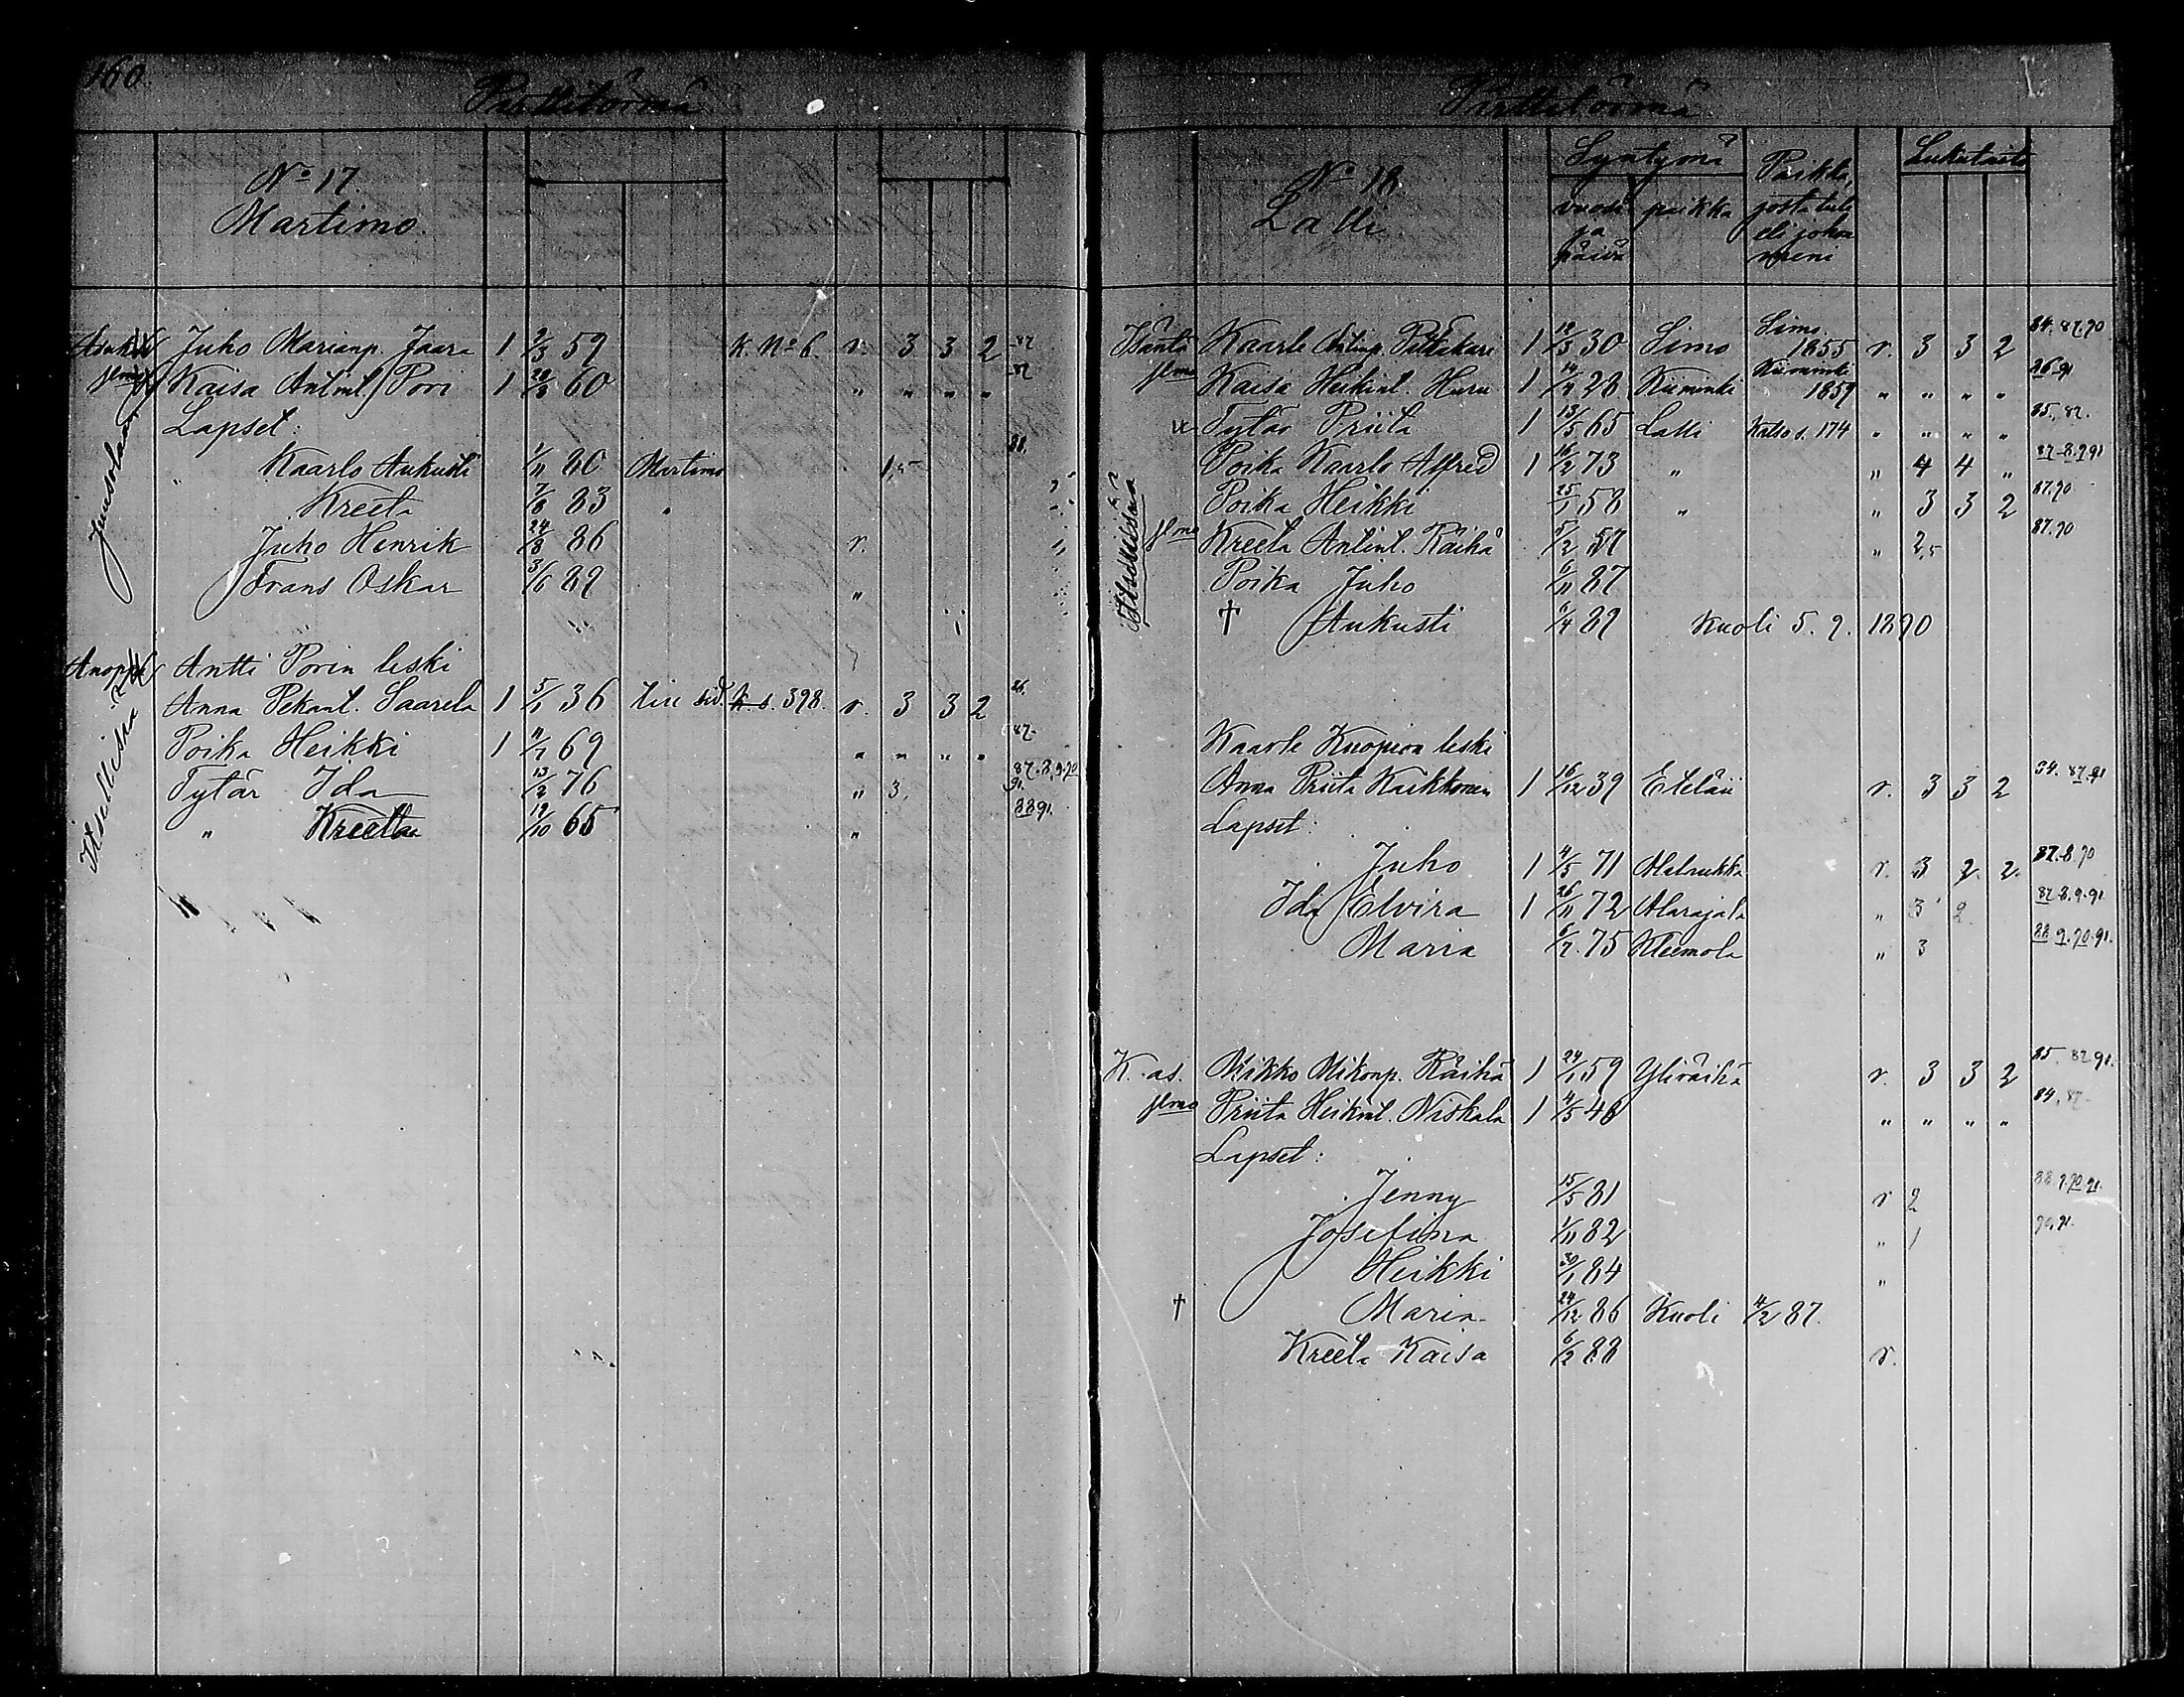 160.
Pirttitörmä
No 17.
Martimo.
Juho Marianp. Jaara 1 2/3 59 K. No 6. r. 3 3 2 87
Kaisa Antint. Pori 1 60 " " " " 87
Lapset:
" Kaarlo Aukusti 1/11 80 Martimo 1,5 88.
Kreeta 7/8 83 "
Juho Henrik 24/8 86 r.
Frans Oskar 3/6 89 "
Antti Porin leski
Anna Pekant. Saarela 1 5/1 36 K. s. 398. r. 3 3 2 86.
Poika Heikki 1 11/7 69 " " " " 87.
Tytär Ida 13/2 76 " 3. 87.8.9.90 91.
" Kreeta 19/10 65 " 88 91.
Itsellisiä
Pirttitörmä
No 18.
Lalli
Syntymä
vuosi ja päivä
paikka
Paikka, josta tuli eli johon meni
Lukutaito
Isäntä Kaarle Antinp. Pittäkari 1 30 Simo Simo 1855 r. 3 3 2 84. 87.90
Kaisa Heikint. Huru 1 28 Kiiminki Kiiminki 1859 " " " " 86 91
Tytär Priita 1 13/5 65 Lalli Katso s. 174 " " " " 85, 87.
Poika Kaarlo Alfred 1 16/2 73 " " 4 4 " 87-8.9 91
Poika Heikki 25/1 58 " " 3 3 2 87.90
Kreeta Antint. Räihä 5/2 57 " 2,5 87.90
Poika Juho 6/11 87
† Aukusti 6/4 89 Kuoli 5. 9. 1890
Itsellisiä
Kaarle Kuopion leski
Anna Priita Kaikkonen 1 16/12 39 Eteläii r. 3 3 2 34. 87.91
Lapset:
Juho 1 4/5 71 r. 3 2. 2. 87.8.90
Ida Elvira 1 26/11 72 Alarajala " 3 2 87.8.9.91
Maria 6/7. 75 Kleemola " 3 88 9.90.91.
K. as. Mikko Mikonp. Räihä 1 24/1 59 Yliräihä r. 3 3 2 85. 87 91.
Priita Heikint. Niskala 1 4/5 46 " " " " 84, 87.
Lapset:
Jenny 15/5 81 r 2 88.9.90.91.
Josefiina 1/11 82 " 1 90.91.
Heikki 30/1 84 "
† Maria 24/12 86 Kuoli 4/2 87.
Kreeta Kaisa 6/2 88 r.